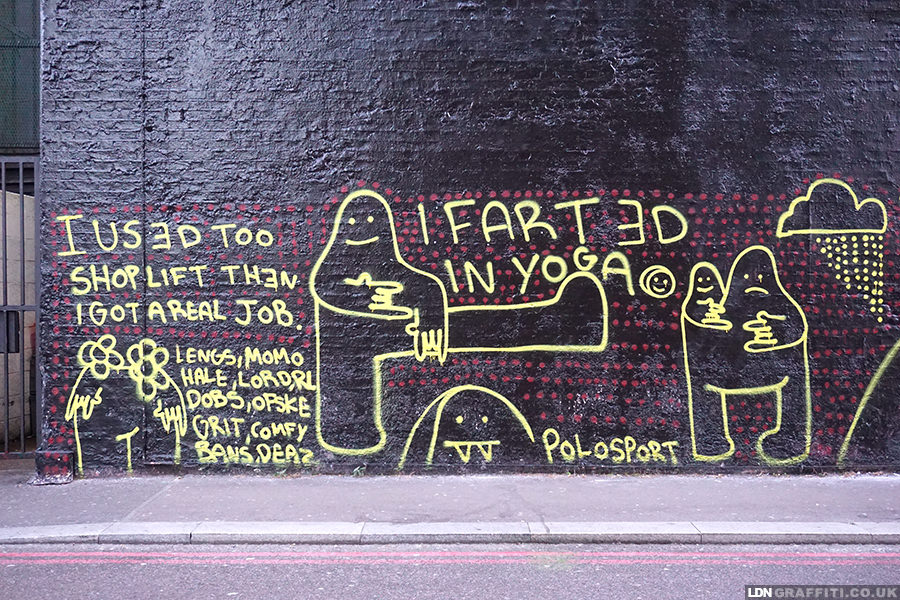 I USED TOO
SHOPLIFT THEN
I GOT A REAL JOB.
I FARTED
IN YOGA
LENGS, MOMO
HALE, LORD, RL
DOBS, OPSKE
GRIT, COMFY
BANS, DEAZ
POLOSPORT
LDNGRAFFITI.CO.UK